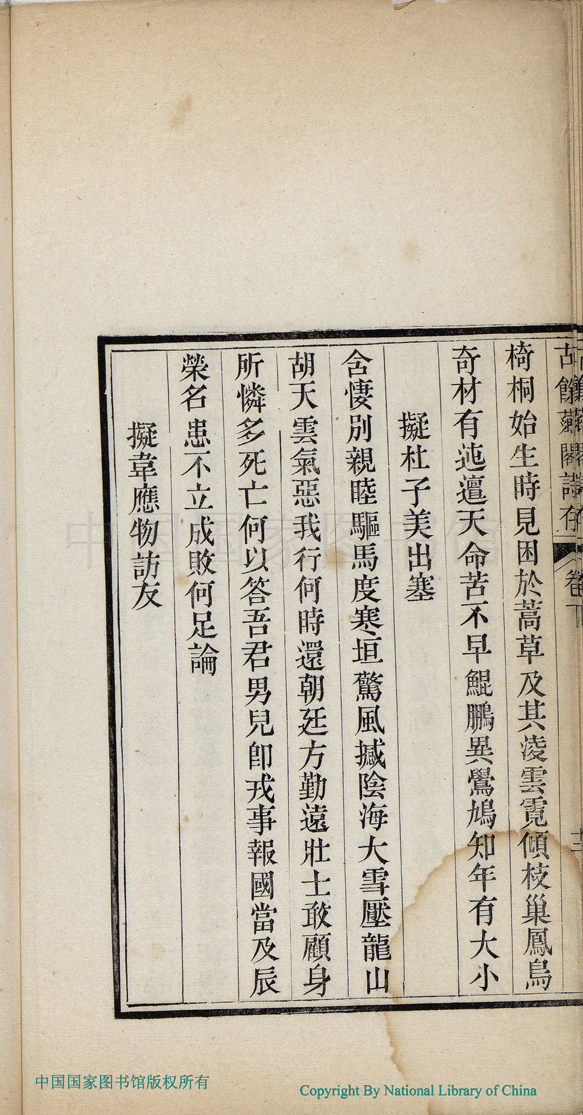 椅桐始生時見困於蒿草及其凌雲霓傾枝巢鳳鳥
奇材有迍邅天命苦不早鯤鵬異鷽鳩知年有大小
擬杜子美出塞
含悽別親睦驅馬度寒垣驚風撼陰海大雪壓龍山
胡天雲氣惡我行何時還朝廷方勤遠壯士敢顧身
所憐多死亡何以答吾君男兒卽戎事報國當及辰
榮名患不立成敗何足論
擬韋應物訪友
中国国家图书馆
中国国家图书馆版权所有
Copyright By National Library of China